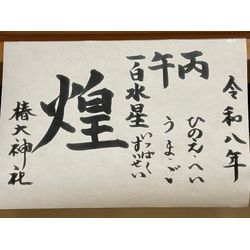 令和八年
丙 ひのえ・へい
午 うま・ご
一白水星 いっぱくすいせい
煌
椿大神社